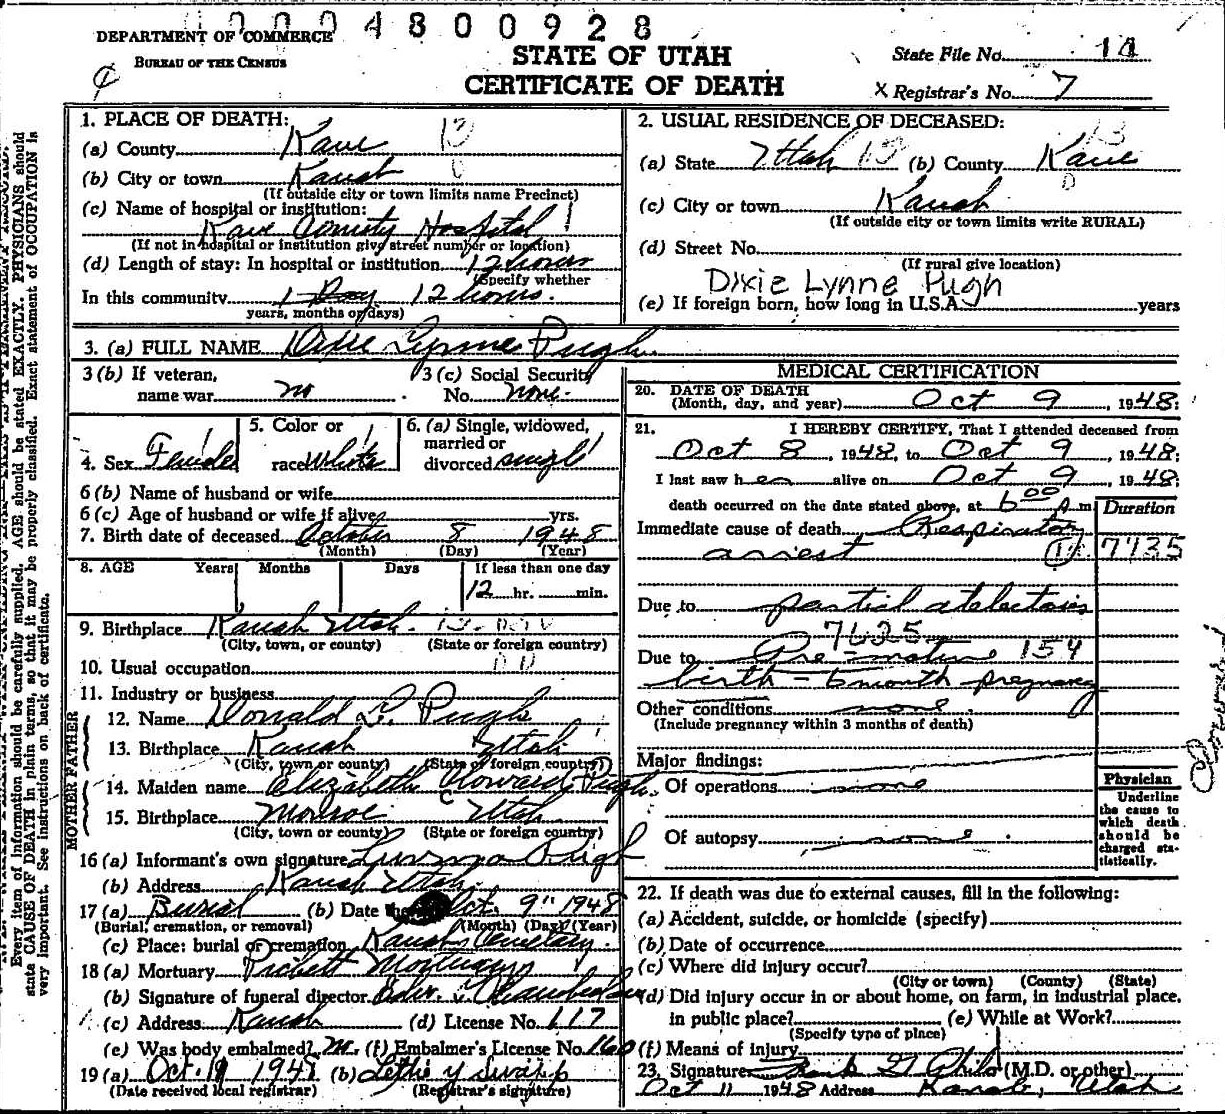 0004800928
DEPARTMENT OF COMMERCE
BUREAU OF THE CENSUS
STATE OF UTAH
CERTIFICATE OF DEATH
State File No. 14
X Registrar's No. 7
Every item of information should be carefully supplied. AGE should be stated EXACTLY. PHYSICIANS should
state CAUSE OF DEATH in plain terms, so that it may be properly classified. Exact statement of OCCUPATION is
very important. See instructions on back of certificate.
1. PLACE OF DEATH:
(a) County Kane 13
(b) City or town Kanab
(If outside city or town limits name Precinct)
(c) Name of hospital or institution:
Kane County Hospital
(If not in hospital or institution give street number or location)
(d) Length of stay: In hospital or institution 12 hours
(Specify whether
In this community 1 Day 12 hours.
years, months or days)
2. USUAL RESIDENCE OF DECEASED:
(a) State Utah 13 (b) County Kane 13
(c) City or town Kanab
(If outside city or town limits write RURAL)
(d) Street No.
(If rural give location)
Dixie Lynne Pugh
(e) If foreign born, how long in U.S.A. years
3. (a) FULL NAME Dixie Lynne Pugh
3 (b) If veteran, name war no
3 (c) Social Security No. none.
4. Sex Female
5. Color or race White
6. (a) Single, widowed, married or divorced single
6 (b) Name of husband or wife
6 (c) Age of husband or wife if alive yrs.
7. Birth date of deceased October 8 1948
(Month) (Day) (Year)
8. AGE Years Months Days If less than one day
12 hr. min.
9. Birthplace Kanab Utah.
(City, town, or county) (State or foreign country)
10. Usual occupation
11. Industry or business
FATHER
12. Name Donald L. Pugh
13. Birthplace Kanab Utah
(City, town or county) (State or foreign country)
MOTHER
14. Maiden name Elizabeth Howard Pugh.
15. Birthplace Monroe Utah
(City, town or county) (State or foreign country)
16 (a) Informant's own signature Pugh
(b) Address Kanab Utah.
17 (a) Burial (b) Date Oct. 9" 1948
(Burial, cremation, or removal) (Month) (Day) (Year)
(c) Place: burial or cremation Kanab Cemetery.
18 (a) Mortuary Mortuary
(b) Signature of funeral director Chamberlain
(c) Address Kanab (d) License No. 117
(e) Was body embalmed? (f) Embalmer's License No. 160
19 (a) Oct. 1948 (b) Lettie Y Swapp
(Date received local registrar) (Registrar's signature)
MEDICAL CERTIFICATION
20. DATE OF DEATH
(Month, day, and year) Oct 9, 1948;
21. I HEREBY CERTIFY, That I attended deceased from
Oct 8, 1948, to Oct 9, 1948;
I last saw her alive on Oct 9, 1948
death occurred on the date stated above, at 6 00 A m.
Duration
Immediate cause of death Respiratory
arrest 7735
Due to partial atelectasis
7625
Due to Pre-mature 154
birth - 6 month pregnancy
Other conditions none
(Include pregnancy within 3 months of death)
Major findings:
Of operations none
Of autopsy none.
Physician
Underline
the cause to
which death
should be
charged sta-
tistically.
22. If death was due to external causes, fill in the following:
(a) Accident, suicide, or homicide (specify)
(b) Date of occurrence
(c) Where did injury occur?
(City or town) (County) (State)
(d) Did injury occur in or about home, on farm, in industrial place,
in public place? (e) While at Work?
(Specify type of place)
(f) Means of injury
23. Signature (M.D. or other)
Oct 11 1948 Address Kanab, Utah